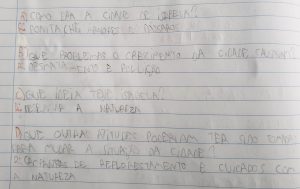 A) COMO ERA A CIDADE DE ISABELA?
R: BONITA CHEIA ARVORES E PASSAROS
B) QUE PROBLEMAS O CRESCIMENTO DA CIDADE
R: DESMATAMENTO E POLUIÇÃO
C) QUE IDEIA TEVE ISABELA?
R: A NATUREZA
D) QUE OUTRAS ATITUDES PODERIAM TER SIDO TOMADAS
PARA MUDAR A SITUAÇÃO DA CIDADE?
R: DE REFLORESTAMENTO E CUIDADOS COM
A NATUREZA